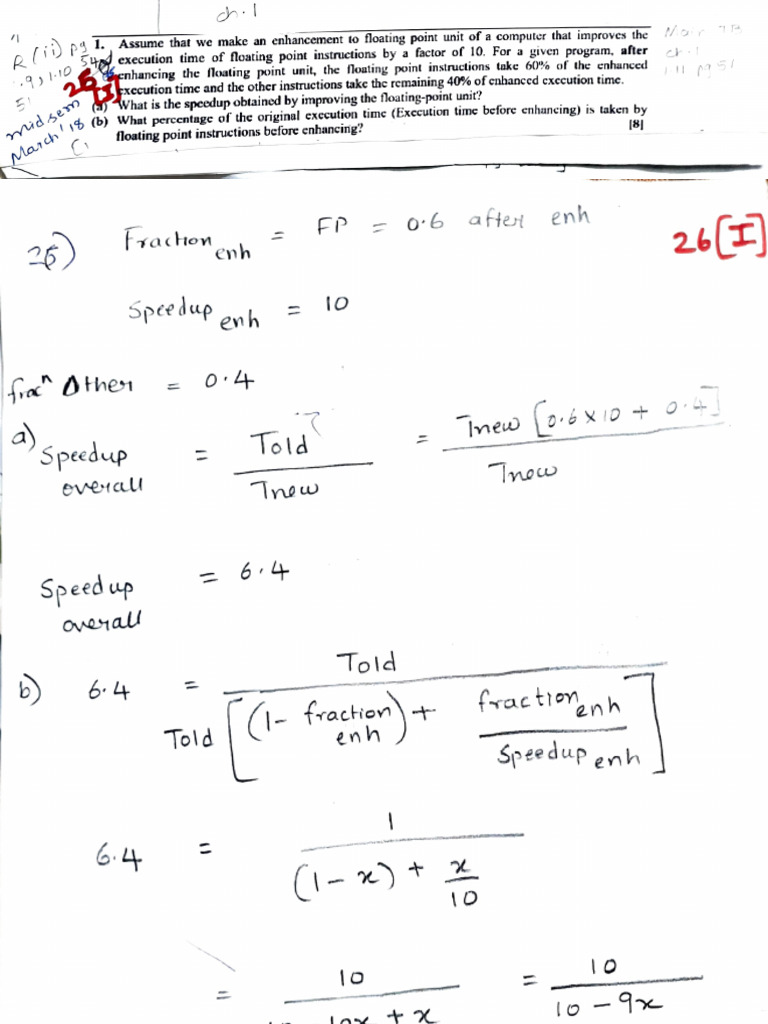 ch.1
1. Assume that we make an enhancement to floating point unit of a computer that improves the
execution time of floating point instructions by a factor of 10. For a given program, after
enhancing the floating point unit, the floating point instructions take 60% of the enhanced
execution time and the other instructions take the remaining 40% of enhanced execution time.
(a) What is the speedup obtained by improving the floating-point unit?
(b) What percentage of the original execution time (Execution time before enhancing) is taken by
floating point instructions before enhancing? [8]
R(ii) pg
51
midsem
March '18
26
[I]
ch.1
26) Fraction enh = FP = 0.6 after enh
26[I]
Speedup enh = 10
fracn Other = 0.4
a) Speedup overall = Told / Tnew = Tnew [0.6 x 10 + 0.4] / Tnew
Speedup overall = 6.4
b) 6.4 = Told / Told [(1- fraction enh) + fraction enh / Speedup enh]
6.4 = 1 / (1-x) + x/10
= 10 / 10x + x = 10 / 10 - 9x